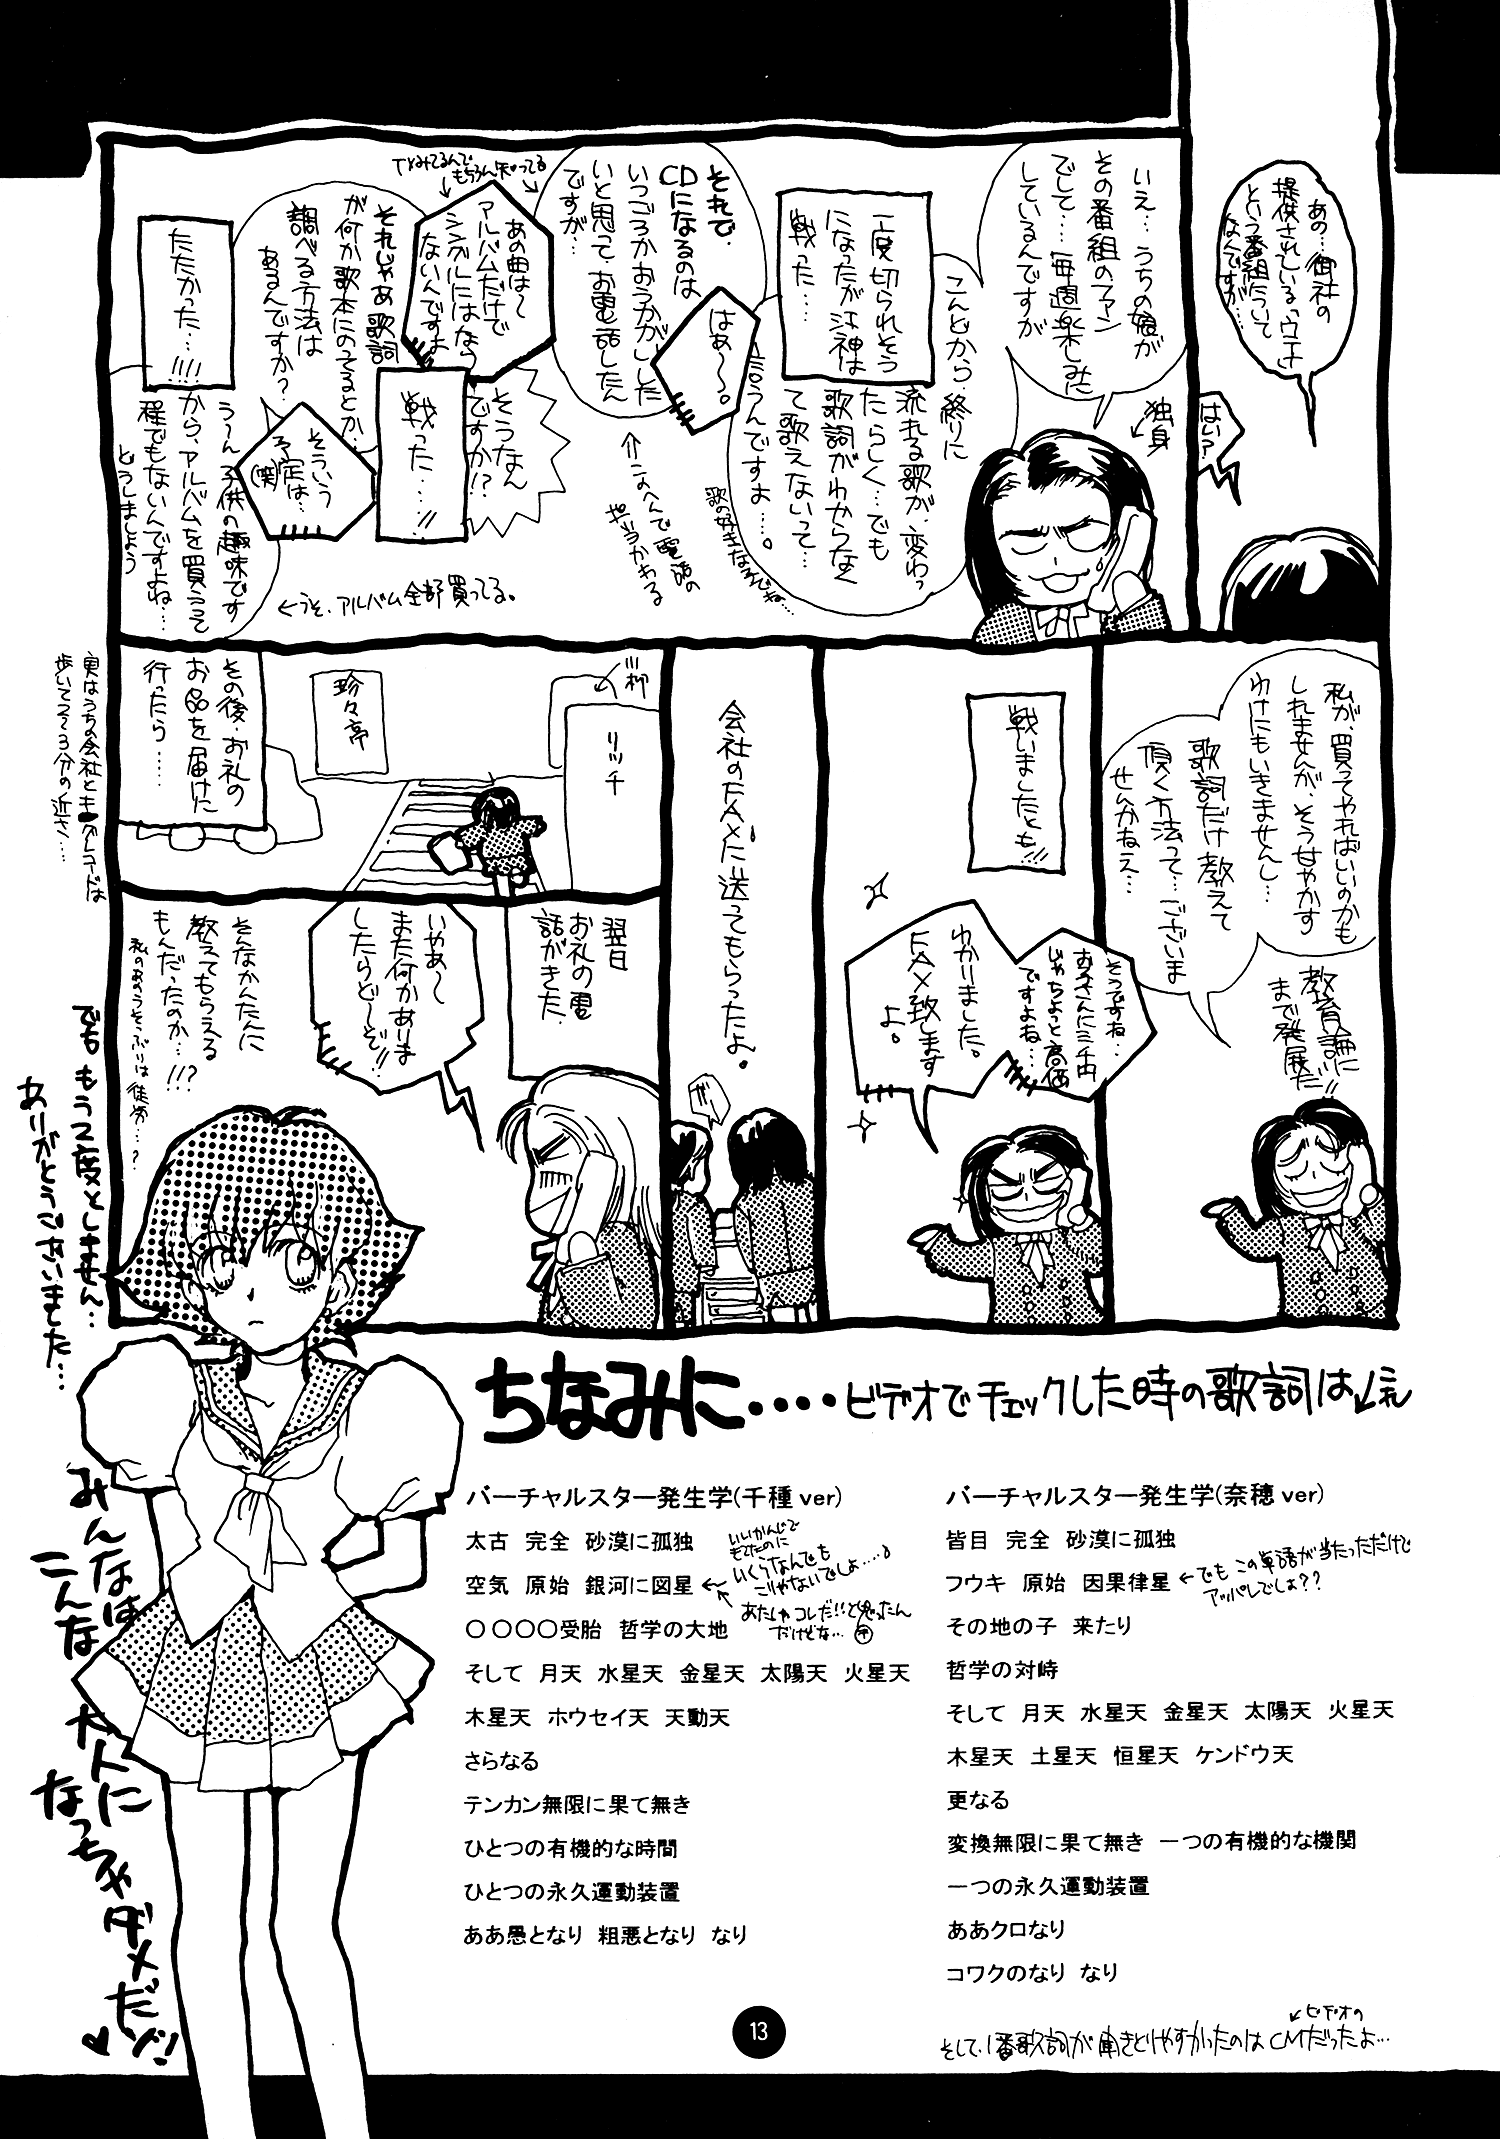 あの…御社の
提供されている「ウテナ」
という番組について
なんですが…
はい?
いえ…うちの娘が
その番組のファン
でして…毎週楽しみに
しているんですが
独身
こんどから終りに
流れる歌が、変わっ
たらしく…でも
歌詞がわからなく
て歌えないって…
言うんですよ…。
歌の好きな子でね…
一度切られそう
になったが江神は
戦った…
はぁ〜。
それで、
CDになるのは
いつごろかおうかがいした
いと思って、お電話したん
ですが…
↑このへんで電話の
担当かわる
TVみてるんで
もちろん知ってる
あの曲は〜
アルバムだけで
シングルにはなら
ないんですよ
そうなん
ですか!?
戦った…!!
それじゃあ歌詞
が何か歌本にのってるとか…
調べる方法は
あるんですか?
そういう
予定は…
(笑)
たたかった…!!!!
う〜ん子供の趣味です
から、アルバムを買うって
程でもないんですよね…
どうしましよう
←うそ、アルバム全部買ってる。
私が、買ってやればいいのかも
しれませんが、そう甘やかす
わけにもいきませんし…
歌詞だけ教えて
頂く方法って…ございま
せんかねえ…
教育論に
まで発展だ!!
戦いましたとも!!!
そうですね…
お子さんに三千円
じゃちよっと高価
ですよね…
わかりました。
FAX致します
よ。
会社のFAXに送ってもらったよ。
川柳
リッチ
珍々亭
その後、お礼の
お品を届けた
行ったら…
実はうちの会社とキングレコードは
歩いて2〜3分の近さ…
翌日
お礼の電
話がきた。
いやぁ〜
また何かありま
したらど〜ぞ!!
そんなかんたんに
教えてもらえる
もんだったのか…!!?
私のあのうそぶりは徒労…?
でももう2度としません…
ありがとうございました…
みんなは
こんな
大人に
なっちゃダメだゾ!
ちなみに・・・・ビデオでチェックした時の歌詞は↓こんな
バーチャルスター発生学(千種ver)
太古 完全 砂漠に孤独
空気 原始 銀河に図星
〇〇〇〇受胎 哲学の大地
そして 月天 水星天 金星天 太陽天 火星天
木星天 ホウセイ天 天動天
さらなる
テンカン無限に果て無き
ひとつの有機的な時間
ひとつの永久運動装置
ああ愚となり 粗悪となり なり
いいかんじで
きてたのに
いくらなんでも
こりゃないでしょ…♪
あたしゃコレだ!!と思ったん
だけどな…千
バーチャルスター発生学(奈穂ver)
皆目 完全 砂漠に孤独
フウキ 原始 因果律星
その地の子 来たり
哲学の対峙
そして 月天 水星天 金星天 太陽天 火星天
木星天 土星天 恒星天 ケンドウ天
更なる
変換無限に果て無き 一つの有機的な機関
一つの永久運動装置
ああクロなり
コワクのなり なり
←でもこの単語が当たっただけで
アッパレでしょ??
そして、1番歌詞が聞きとりやすかったのはCMだったよ…
ビデオの
13